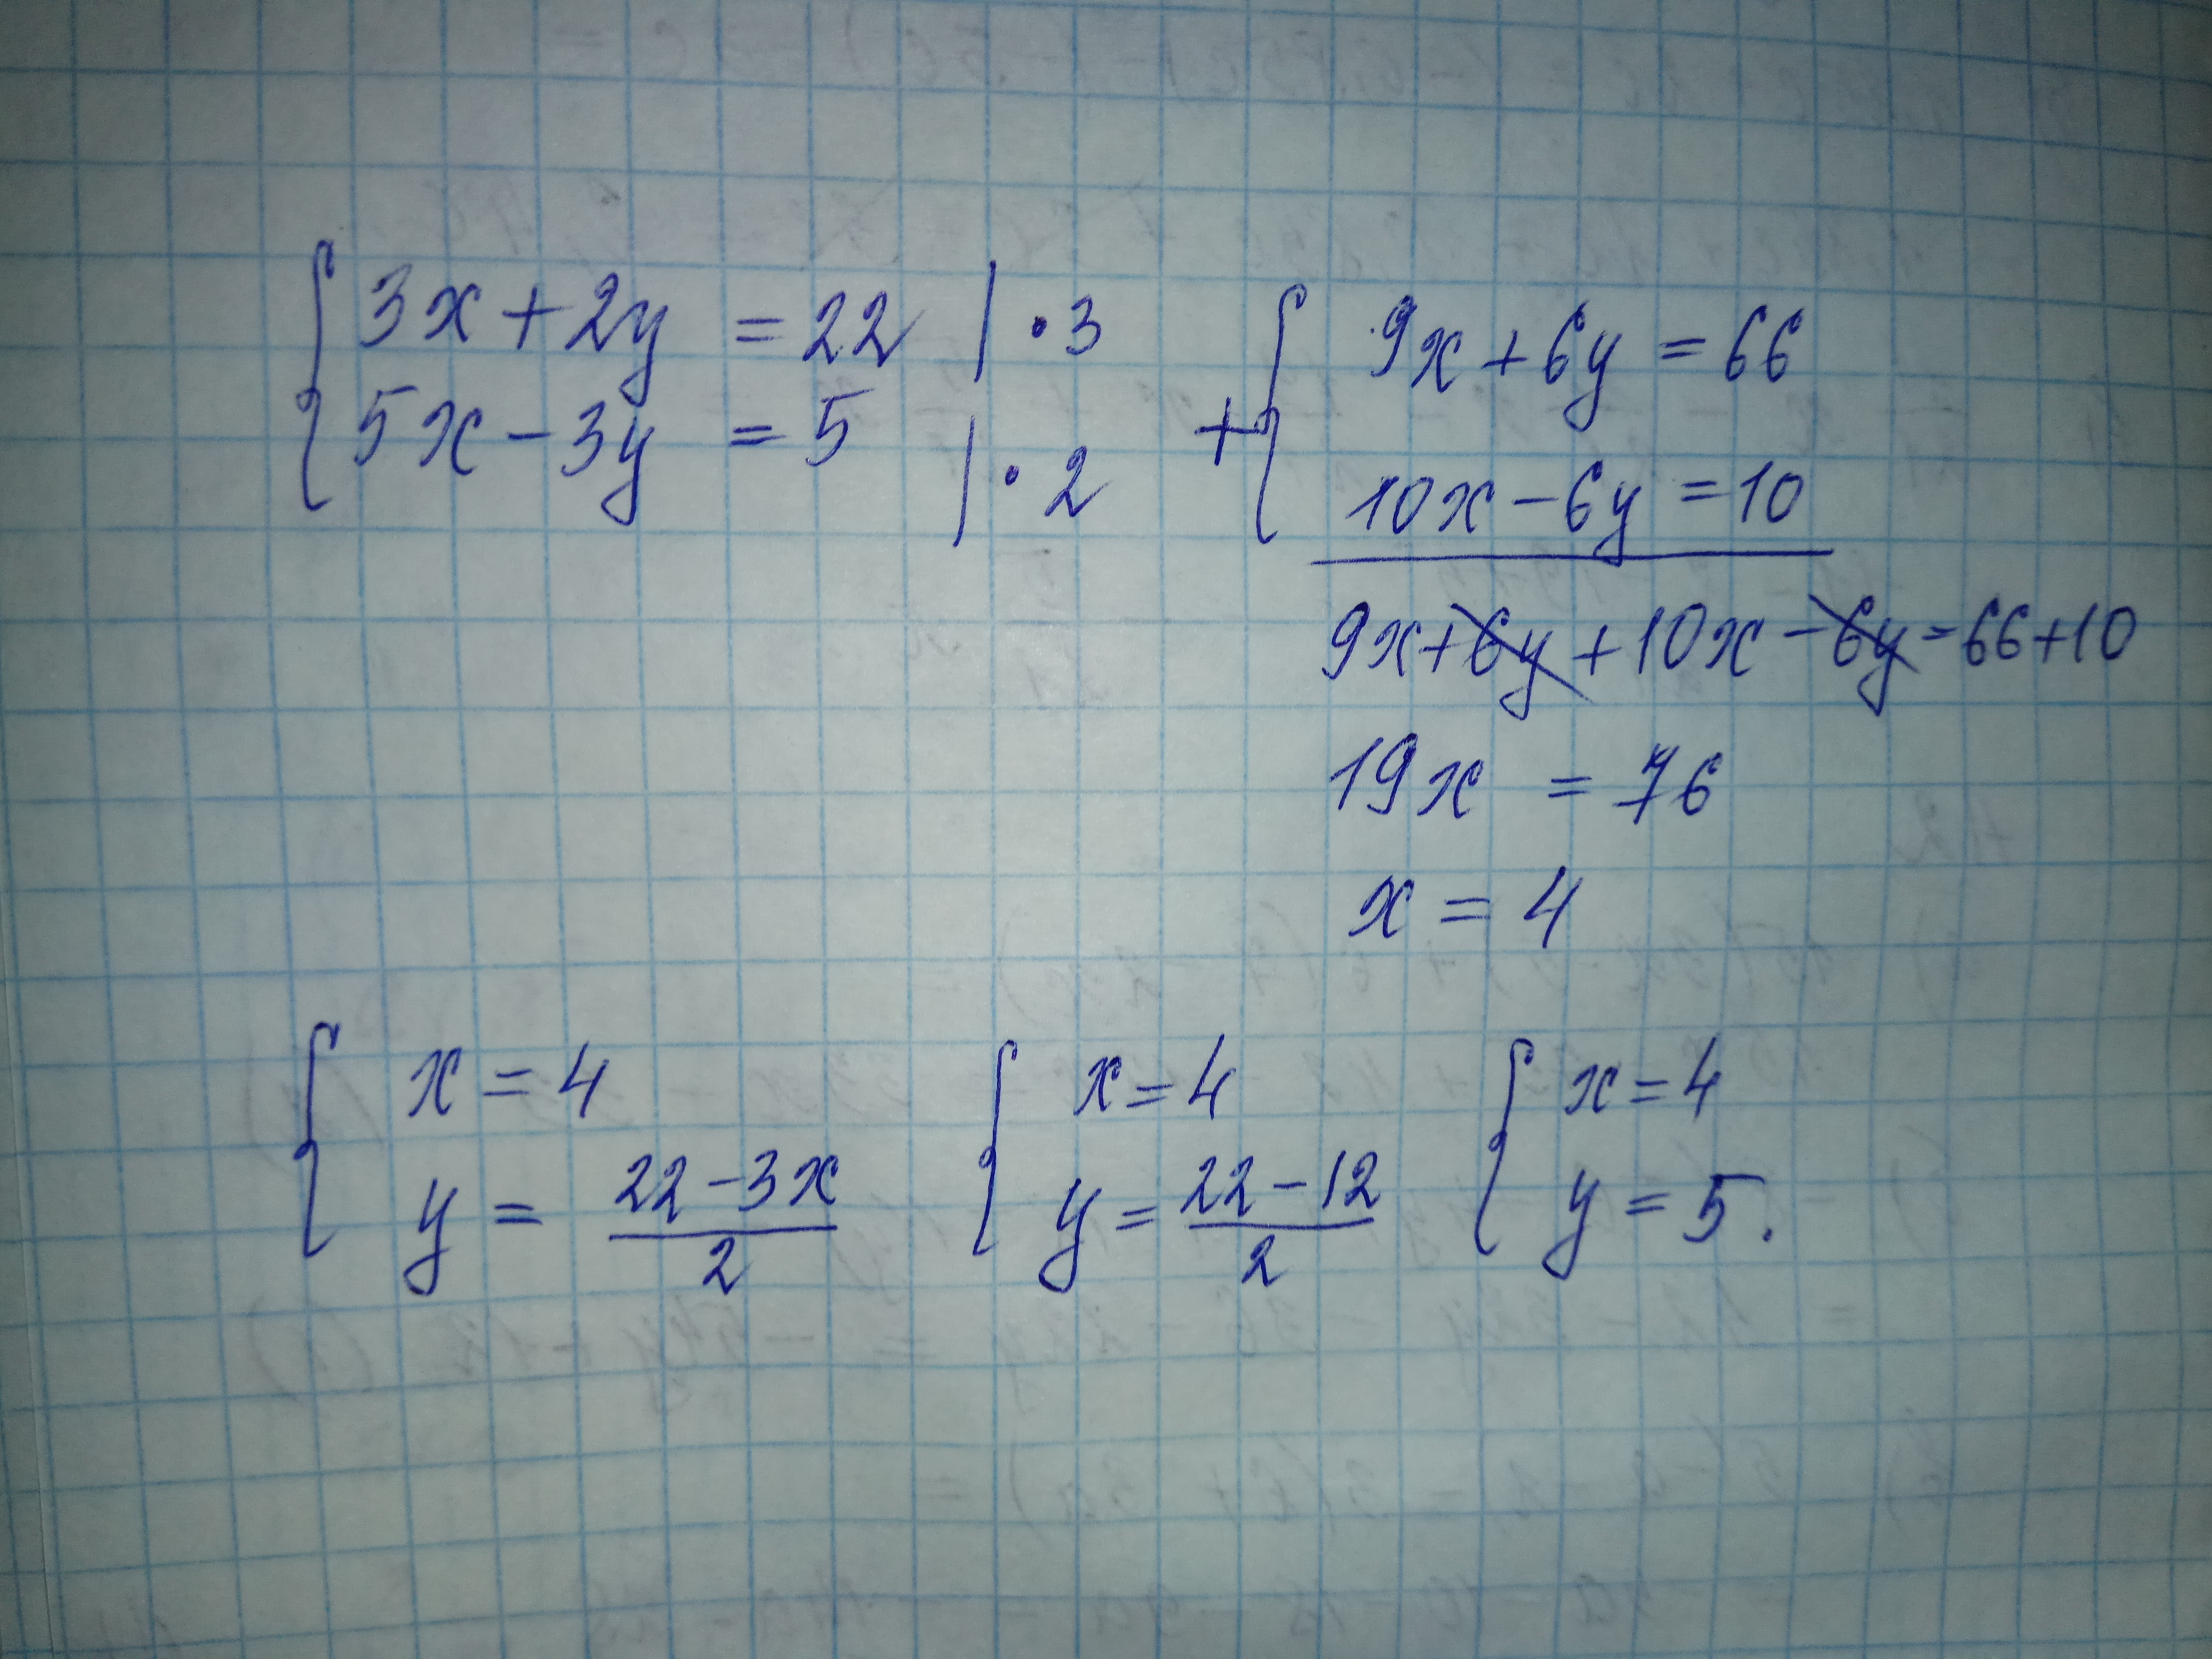 3x + 2y = 22 | · 3
5x - 3y = 5 | · 2
+ 9x + 6y = 66
10x - 6y = 10
9x + 6y + 10x - 6y = 66 + 10
19x = 76
x = 4
x = 4
y = \frac{22 - 3x}{2}
x = 4
y = \frac{22 - 12}{2}
x = 4
y = 5.